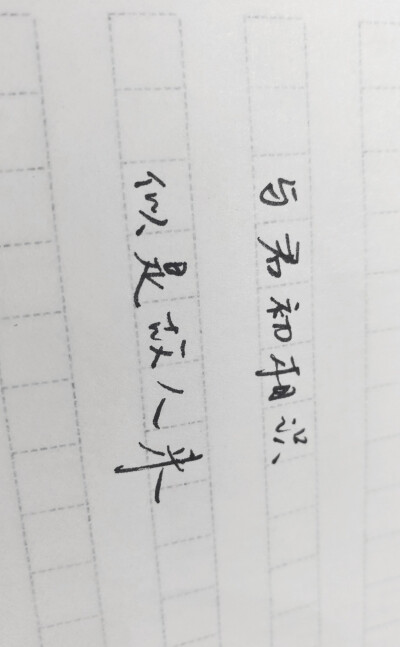 与君初相识
似是故人来